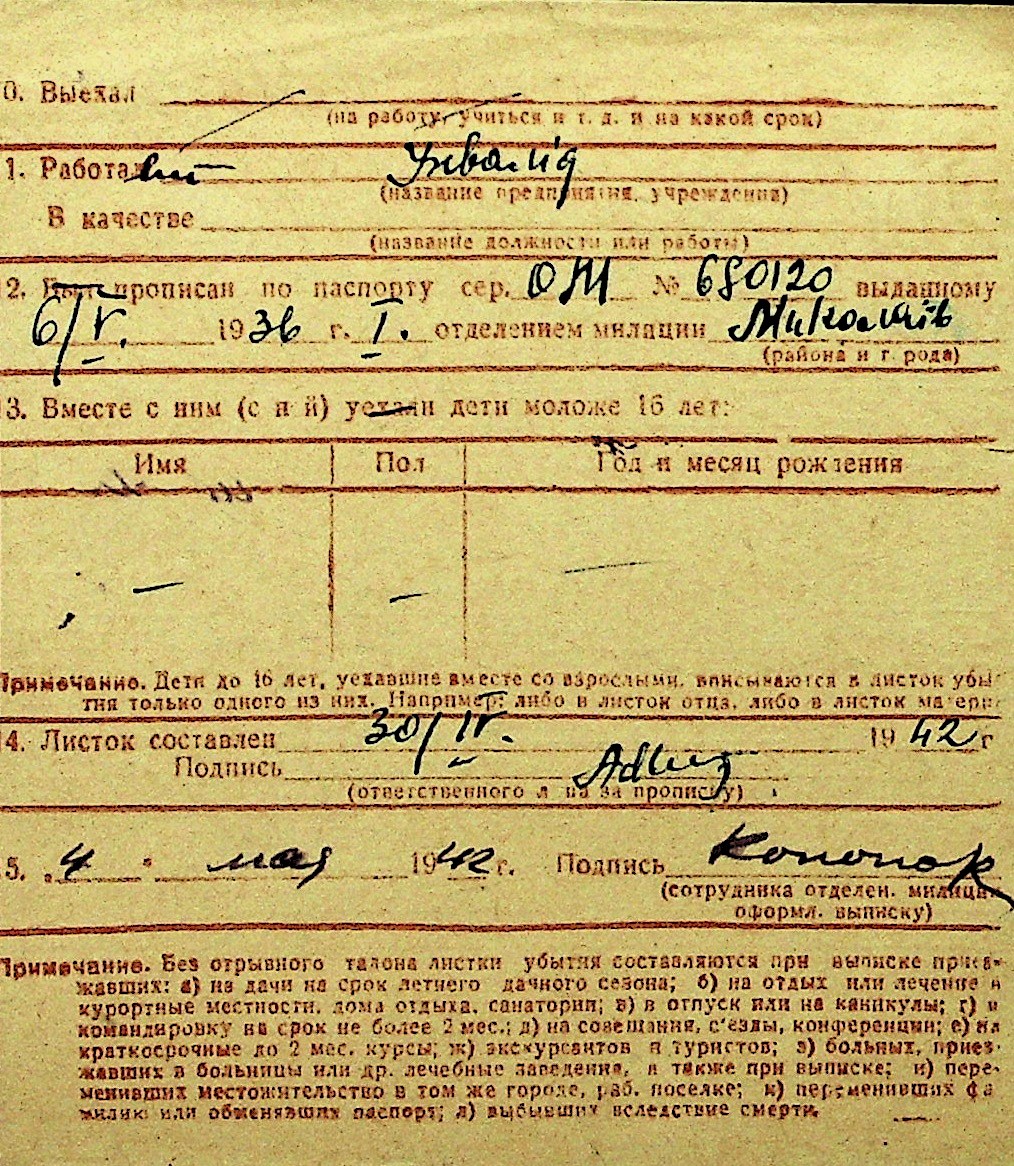 0. Выехал
(на работу, учиться и т. д. и на какой срок)
1. Работал Інвалід
(название предприятия, учреждения)
В качестве
(название должности или работы)
2. Был прописан по паспорту сер. ОЖ № 680120 выданному
6/IV. 1936 г. I. отделением милации Миколаїв
(района и г рода)
3. Вместе с ним (с н й) уехали дети моложе 16 лет:
Имя Пол Год и месяц рождения
— — —
Примечание. Дети до 16 лет, уехавшие вместе со взрослыми, вписываются в листок убы-
тия только одного из них. Например: либо в листок отца, либо в листок матери.
4. Листок составлен 30/IV. 1942 г
Подпись
(ответственного л на за прописку)
5. „4" мая 1942 г. Подпись
(сотрудника отделен. милиции
оформл. выписку)
Примечание. Без отрывного талона листки убытия составляются при выписке приез-
жавших: а) на дачи на срок летнего дачного сезона; б) на отдых или лечение в
курортные местности, дома отдыха, санатории; в) в отпуск или на каникулы; г) в
командировку на срок не более 2 мес.; д) на совещания, с'езды, конференции; е) на
краткосрочные до 2 мес. курсы; ж) экскурсантов и туристов; з) больных, приез-
жавших в больницы или др. лечебные заведения, а также при выписке; и) пере-
менивших местожительство в том же городе, раб. поселке; к) переменивших фа
милию или обменявших паспорт; л) выбывших вследствие смерти.